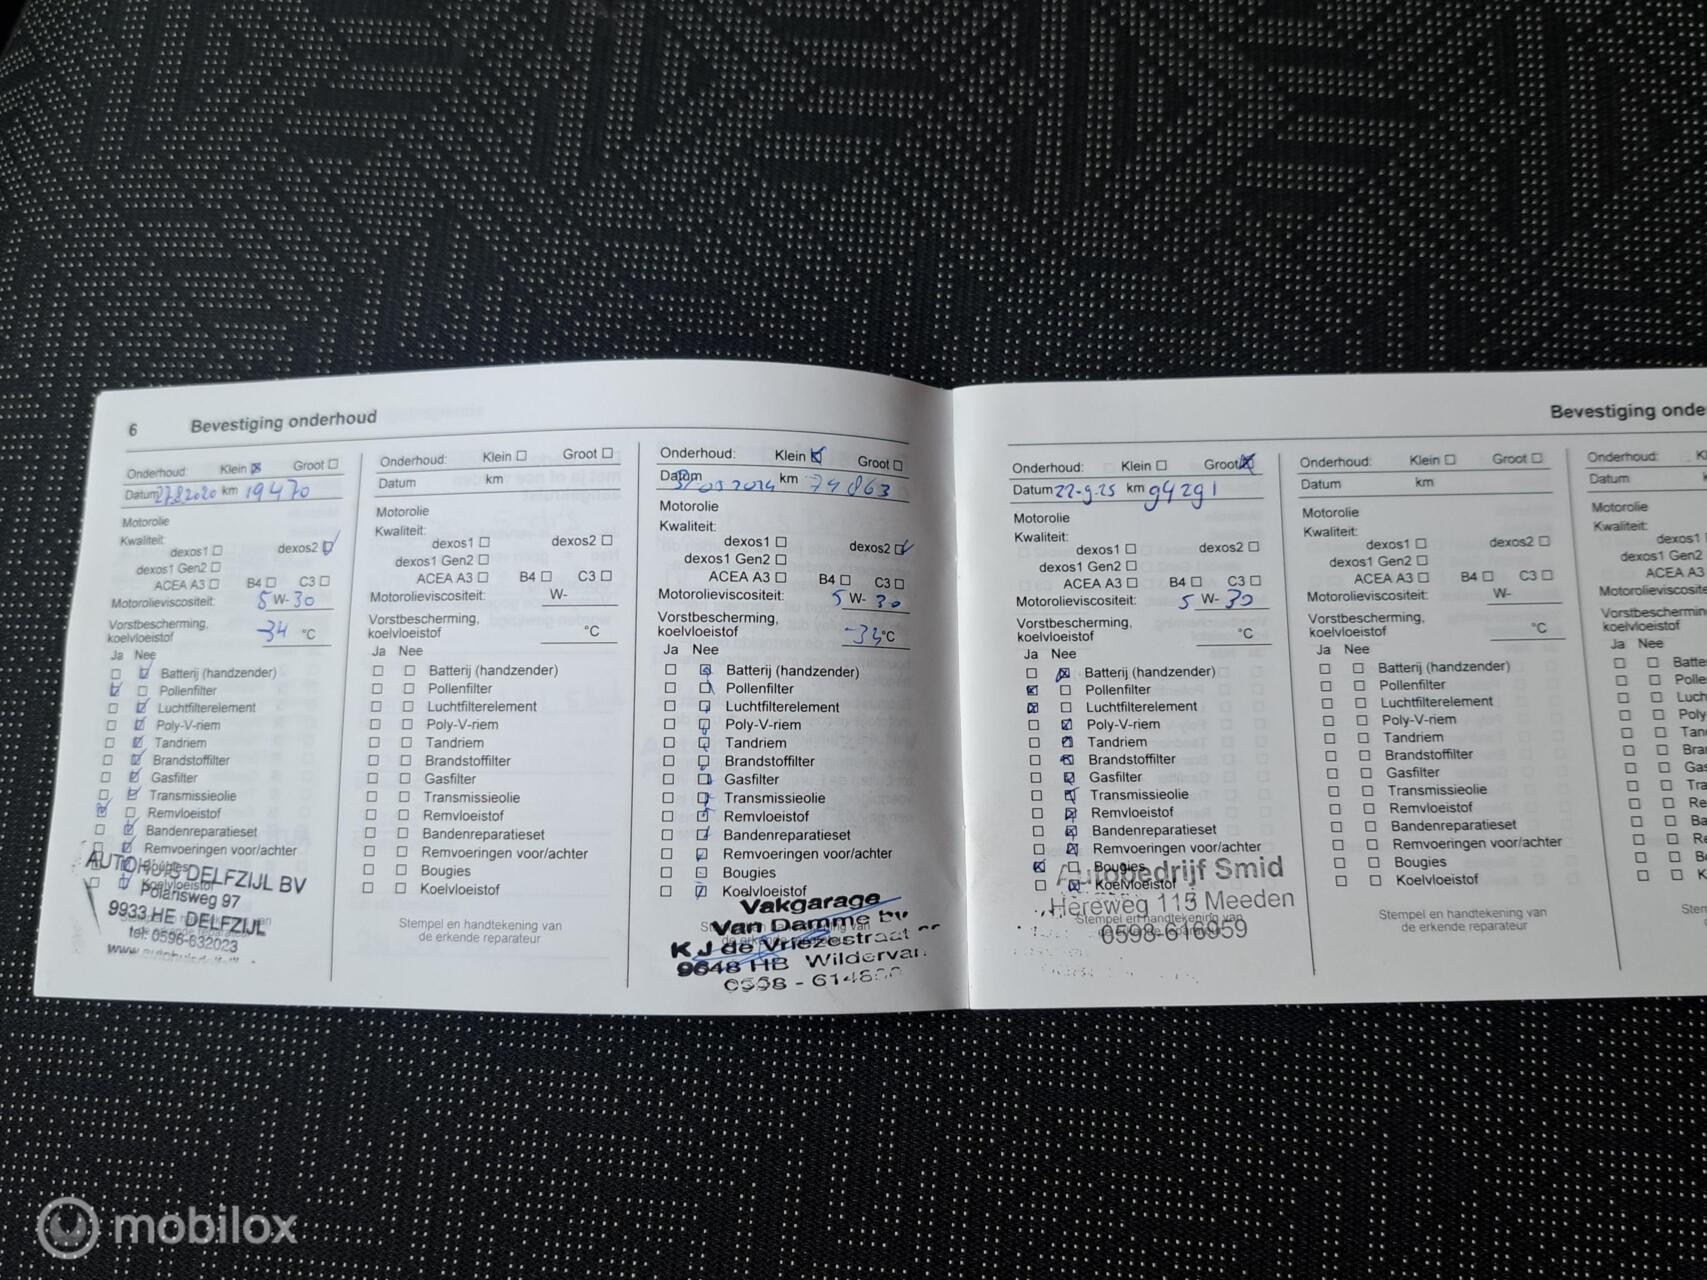 6 Bevestiging onderhoud
Onderhoud: Klein Groot
Datum 27.8.2020 km 19470
Motorolie
Kwaliteit:
dexos1 dexos2
dexos1 Gen2
ACEA A3 B4 C3
Motorolieviscositeit: 5 W- 30
Vorstbescherming,
koelvloeistof -34 °C
Ja Nee
Batterij (handzender)
Pollenfilter
Luchtfilterelement
Poly-V-riem
Tandriem
Brandstoffilter
Gasfilter
Transmissieolie
Remvloeistof
Bandenreparatieset
Remvoeringen voor/achter
Bougies
Koelvloeistof
AUTOHUIS DELFZIJL BV
Polarisweg 97
9933 HE DELFZIJL
tel: 0596-632023
Onderhoud: Klein Groot
Datum km
Motorolie
Kwaliteit:
dexos1 dexos2
dexos1 Gen2
ACEA A3 B4 C3
Motorolieviscositeit: W-
Vorstbescherming,
koelvloeistof °C
Ja Nee
Batterij (handzender)
Pollenfilter
Luchtfilterelement
Poly-V-riem
Tandriem
Brandstoffilter
Gasfilter
Transmissieolie
Remvloeistof
Bandenreparatieset
Remvoeringen voor/achter
Bougies
Koelvloeistof
Stempel en handtekening van
de erkende reparateur
Onderhoud: Klein Groot
Datum km 74863
Motorolie
Kwaliteit:
dexos1 dexos2
dexos1 Gen2
ACEA A3 B4 C3
Motorolieviscositeit: 5 W- 30
Vorstbescherming,
koelvloeistof -34 °C
Ja Nee
Batterij (handzender)
Pollenfilter
Luchtfilterelement
Poly-V-riem
Tandriem
Brandstoffilter
Gasfilter
Transmissieolie
Remvloeistof
Bandenreparatieset
Remvoeringen voor/achter
Bougies
Koelvloeistof
Vakgarage
Van Damme bv
K J de Vriezestraat
9648 HB Wildervan
0598 - 6148
Bevestiging onde
Onderhoud: Klein Groot
Datum 22-9-25 km 94291
Motorolie
Kwaliteit:
dexos1 dexos2
dexos1 Gen2
ACEA A3 B4 C3
Motorolieviscositeit: 5 W- 30
Vorstbescherming,
koelvloeistof °C
Ja Nee
Batterij (handzender)
Pollenfilter
Luchtfilterelement
Poly-V-riem
Tandriem
Brandstoffilter
Gasfilter
Transmissieolie
Remvloeistof
Bandenreparatieset
Remvoeringen voor/achter
Bougies
Koelvloeistof
Autobedrijf Smid
Hereweg 115 Meeden
Stempel en handtekening van
0598-616959
Onderhoud: Klein Groot
Datum km
Motorolie
Kwaliteit:
dexos1 dexos2
dexos1 Gen2
ACEA A3 B4 C3
Motorolieviscositeit: W-
Vorstbescherming,
koelvloeistof °C
Ja Nee
Batterij (handzender)
Pollenfilter
Luchtfilterelement
Poly-V-riem
Tandriem
Brandstoffilter
Gasfilter
Transmissieolie
Remvloeistof
Bandenreparatieset
Remvoeringen voor/achter
Bougies
Koelvloeistof
Stempel en handtekening van
de erkende reparateur
Onderhoud: Kl
Datum
Motorolie
Kwaliteit:
dexos1
dexos1 Gen2
ACEA A3
Motorolieviscosite
Vorstbescherming,
koelvloeistof
Ja Nee
Batte
Polle
Luch
Poly
Tan
Bra
Gas
Tra
Re
Ba
Re
B
K
Stem
mobilox